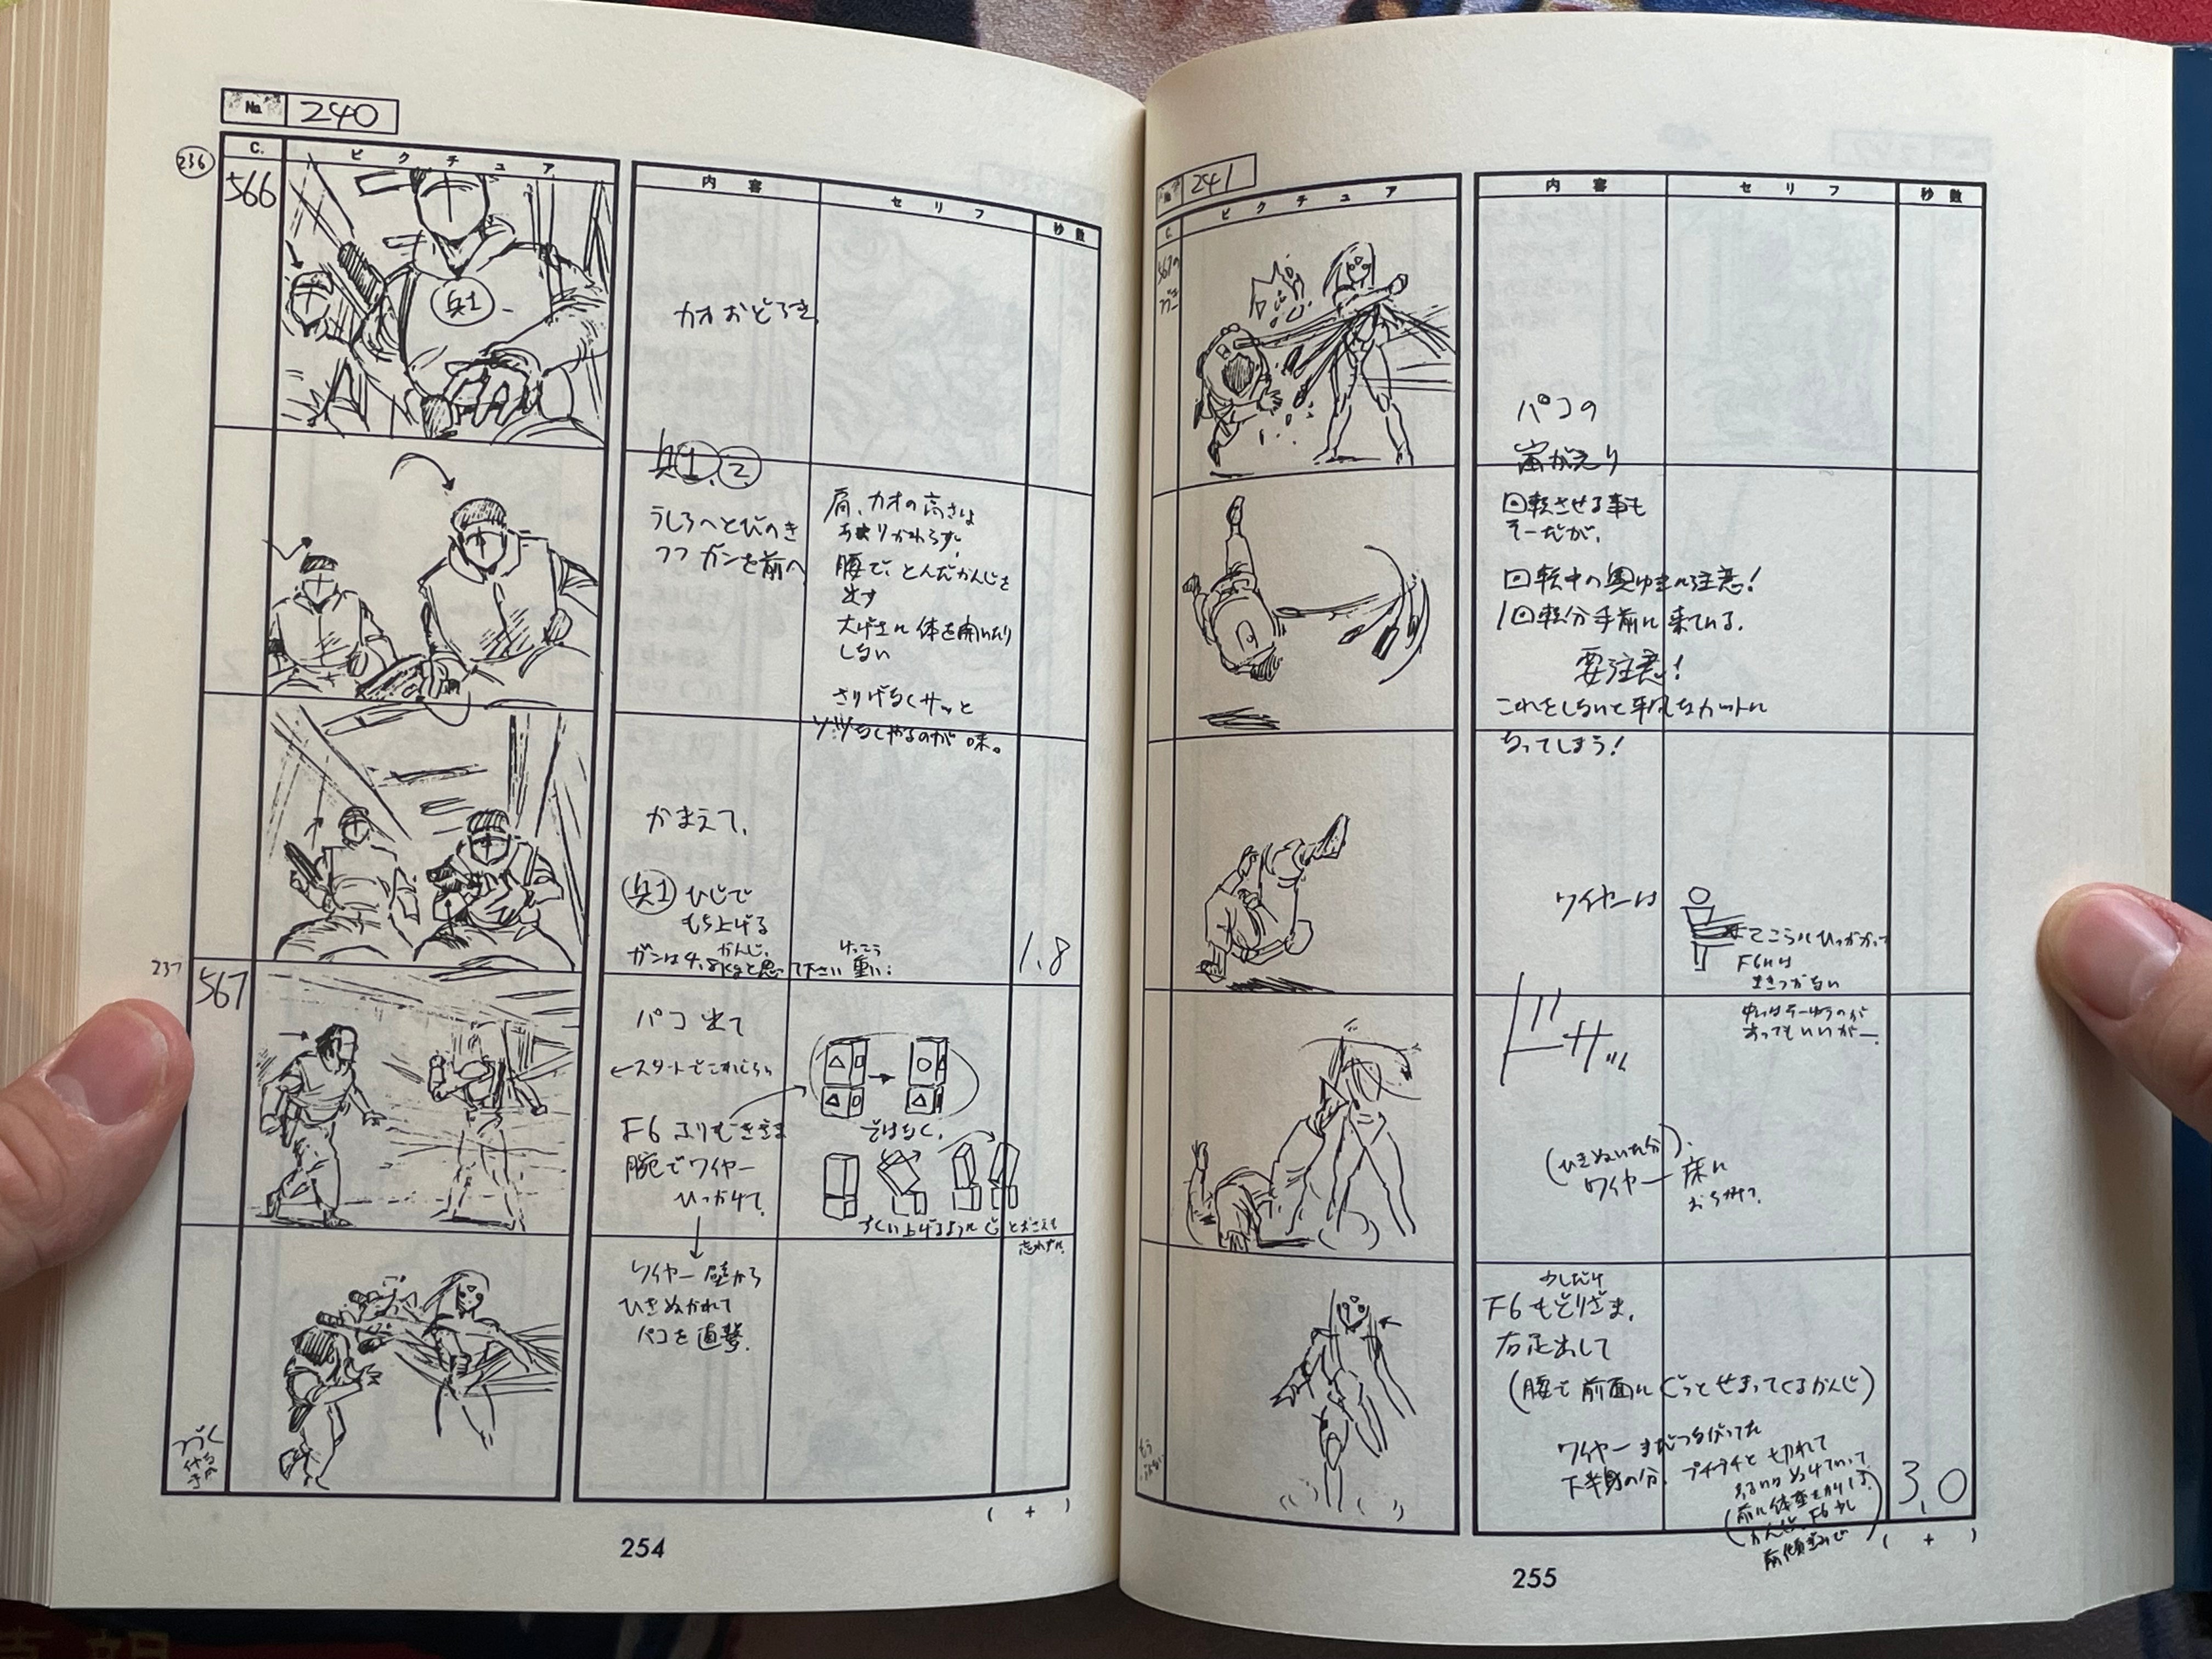 No. 240
C.
ピクチュア
内容
セリフ
秒数
236
566
兵1
カオおどろき
兵1、2
うしろへとびのき
つつ ガンを前へ
肩、カオの高さは
あまりかわらず、
腰で、とんだかんじを
出す
大げさに体を開いたり
しない
さりげなくサッと
ソツなくやるのが味。
かまえて、
兵1 ひじで
もち上げる
かんじ。
ガンは4.8kgと思って下さい
けっこう
重い:
1.8
237
567
パコ 出て
←スタートでこれぐらい
F6 ふりむきざま
腕でワイヤー
ひっかけて
ではなく、
すくい上げるように
ワイヤー 壁から
ひきぬかれて
パコを直撃
つづく
( + )
254
241
C
ピクチュア
内容
セリフ
秒数
567の
パコの
宙がえり
回転させる事も
そーだが、
回転中の奥ゆきに注意!
1回転分手前に来ている。
要注意!
これをしないと平凡なカットに
なってしまう!
ワイヤーは
てこうにひっかかって
F6には
まきつかない
中にはそーゆうのが
あってもいいがー。
ドサッ
(ひきぬいた分)
ワイヤー 床に
おちみて
少しだけ
F6 もどりざま、
右足出して
(腰で 前面に ぐっと せまってくるかんじ)
ワイヤー まだつながってた
下半身の分、プチプチと切れて
あるいは ぬけていって
(前に体重をかける
かんじ、F6 少し
前傾ぎみで)
3.0
( + )
255